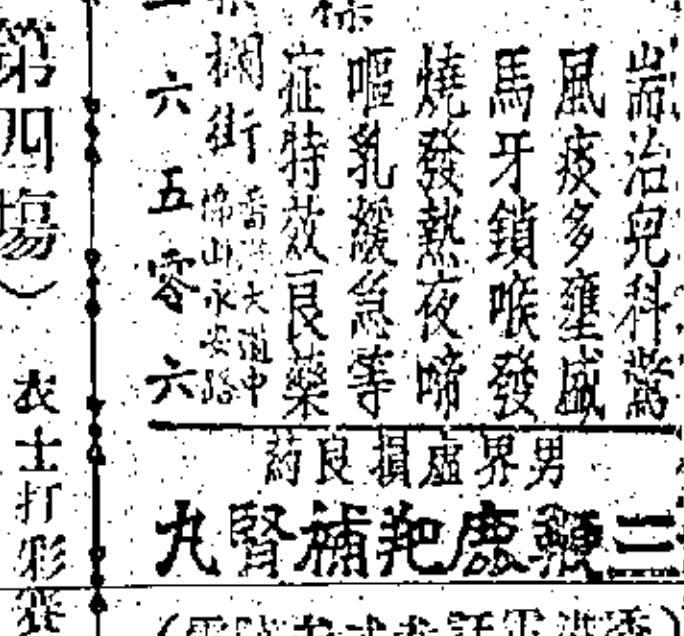 耑治兒科驚
風痰多壅盛
馬牙鎖喉發
燒發熱夜啼
嘔乳緩急等
症特效良藥
欄街
香港大道中
佛山永安路
一六五零六
男界虛損良药
三鞭鹿羓補腎丸
第四塲）
衣士打彩賽